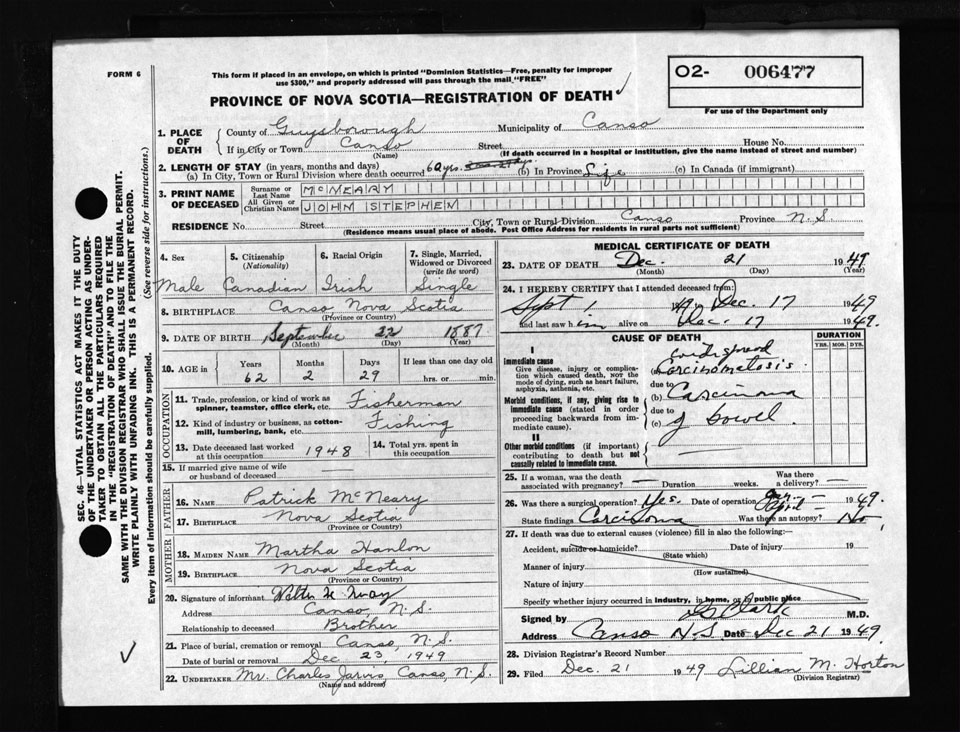 FORM 6
This form if placed in an envelope, on which is printed "Dominion Statistics—Free, penalty for improper
use $300," and properly addressed will pass through the mail "FREE"
PROVINCE OF NOVA SCOTIA—REGISTRATION OF DEATH
O2- 006477
For use of the Department only
1. PLACE OF DEATH
County of Guysborough Municipality of Canso
If in City or Town Canso Street House No.
(Name) (If death occurred in a hospital or institution, give the name instead of street and number)
2. LENGTH OF STAY (in years, months and days)
(a) In City, Town or Rural Division where death occurred 62 yrs. (b) In Province Life (c) In Canada (if immigrant)
3. PRINT NAME OF DECEASED
Surname or Last Name McNEARY
All Given or Christian Names JOHM STEPHEM
RESIDENCE No. Street City, Town or Rural Division Canso Province N.S.
(Residence means usual place of abode. Post Office Address for residents in rural parts not sufficient)
4. Sex 5. Citizenship (Nationality) 6. Racial Origin 7. Single, Married, Widowed or Divorced (write the word)
Male Canadian Irish Single
8. BIRTHPLACE Canso Nova Scotia
(Province or Country)
9. DATE OF BIRTH September 22 1887
(Month) (Day) (Year)
10. AGE in Years Months Days If less than one day old
62 2 29 hrs. or min.
OCCUPATION
11. Trade, profession, or kind of work as
spinner, teamster, office clerk, etc. Fisherman
12. Kind of industry or business, as cotton-
mill, lumbering, bank, etc. Fishing
13. Date deceased last worked at this occupation 1948 14. Total yrs. spent in this occupation
15. If married give name of wife
or husband of deceased
FATHER
16. NAME Patrick McNeary
17. BIRTHPLACE Nova Scotia
(Province or Country)
MOTHER
18. MAIDEN NAME Martha Hanlon
19. BIRTHPLACE Nova Scotia
(Province or Country)
20. Signature of informant
Address Canso, N.S.
Relationship to deceased Brother
21. Place of burial, cremation or removal Canso, N.S.
Date of burial or removal Dec 23, 1949
22. UNDERTAKER Mr. Charles Jarvis, Canso, N.S.
(Name and address)
MEDICAL CERTIFICATE OF DEATH
23. DATE OF DEATH Dec. 21 1949
(Month) (Day) (Year)
24. I HEREBY CERTIFY that I attended deceased from:
Sept 1 49 Dec. 17 1949
and last saw him alive on Dec. 17 1949.
CAUSE OF DEATH DURATION
YRS. MOS. DYS.
I
Immediate cause
Give disease, injury or complication which caused death, not the mode of dying, such as heart failure, asphyxia, asthenia, etc.
(a) Widespread Carcinomatosis.
due to
Morbid conditions, if any, giving rise to immediate cause (stated in order proceeding backwards from immediate cause).
(b) Carcinoma
due to
(c) of bowel.
II
Other morbid conditions (if important) contributing to death but not causally related to immediate cause.
25. If a woman, was the death associated with pregnancy? — Duration weeks. Was there a delivery? —
26. Was there a surgical operation? Yes. Date of operation April 1949.
State findings Carcinoma Was there an autopsy? No.
27. If death was due to external causes (violence) fill in also the following:—
Accident, suicide or homicide? Date of injury 19
(State which)
Manner of injury
(How sustained)
Nature of injury
Specify whether injury occurred in industry, in home, or in public place
Signed by Clark M.D.
Address Canso N.S. Date Dec 21 1949.
28. Division Registrar's Record Number
29. Filed Dec. 21 1949 Lillian M. Horton
(Division Registrar)
SEC. 46—VITAL STATISTICS ACT MAKES IT THE DUTY
OF THE UNDERTAKER OR PERSON ACTING AS UNDER-
TAKER TO OBTAIN ALL THE PARTICULARS REQUIRED
IN THE "REGISTRATION OF DEATH" AND TO FILE THE
SAME WITH THE DIVISION REGISTRAR WHO SHALL ISSUE THE BURIAL PERMIT.
WRITE PLAINLY WITH UNFADING INK. THIS IS A PERMANENT RECORD.
Every item of information should be carefully supplied. (See reverse side for instructions.)